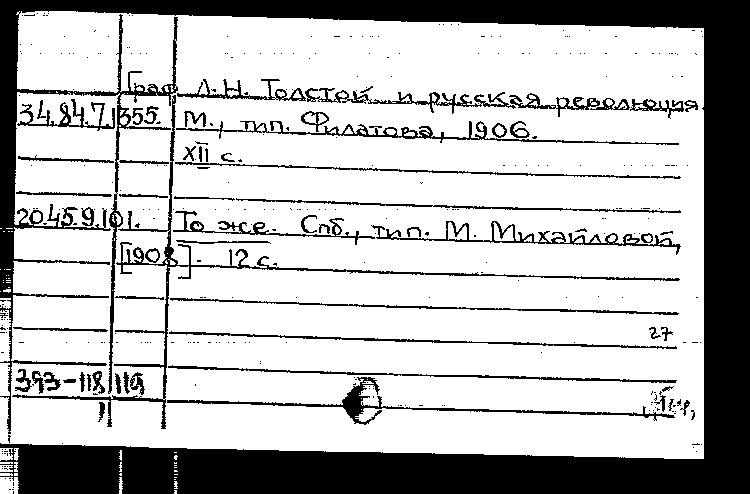 Граф Л.Н. Толстой и русская революция.
34.84.7.1355. М., тип. Филатова, 1906.
XII с.
20.45.9.101. То же. Спб., тип. М. Михайловой,
[1908]. 12 с.
27
393-118/119